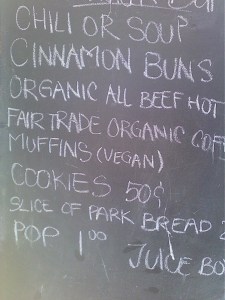 CHILI OR SOUP
CINNAMON BUNS
ORGANIC ALL BEEF HOT
FAIR TRADE ORGANIC COFF
MUFFINS (VEGAN)
COOKIES 50¢
SLICE OF PARK BREAD 2
POP 1.00
JUICE BO